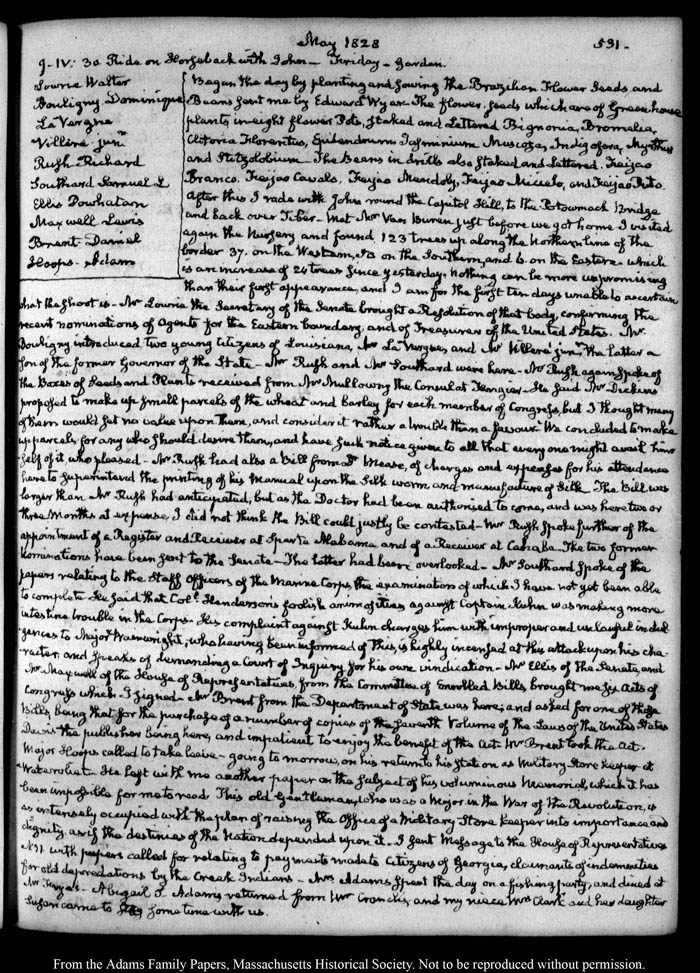 May 1828
531-
9-IV: 30 Ride on Horseback with John- Friday- Garden.
Lowrie Walter
Bouligny Dominique
La Vergne
Villère junr
Rush Richard
Southard Samuel L
Ellis Powhatan
Maxwell Lewis
Brent- Daniel
Hoops- Adam
Began the day by planting and sowing the Brazilian Flower Seeds and
Beans sent me by Edward Wyer. The flower seeds which are of Greenhouse
plants in eight flower Pots, Staked and Lettered Bignonia, Bromelia,
Clitoria Florentis, Epidendrum Jasminium Muscoza, Indigofera, Myrthus
and Stitzolobium The Beans in drills also Staked and Lettered. Feijao
Branco. Feijao Cavalo, Feijao Mendoly, Feijao Miuelo, and Feijao Preto.
After this I rode with John round the Capitol Hill, to the Potowmack Bridge
and back over Tiber- Met Mr Van Buren just before we got home I visited
again the Nursery and found 123 trees up along the Northern line of the
border 37. on the Western, 50 on the Southern, and 6. on the Eastern- which
is an increase of 24 trees since yesterday. nothing can be more unpromising
than their first appearance, and I am for the first ten days unable to ascertain
what the shoot is- Mr Lowrie the Secretary of the Senate brought a Resolution of that body, confirming the
recent nominations of Agents for the Eastern boundary, and of Treasurer of the United States. Mr
Bouligny introduced two young Citizens of Louisiana, Mr La Vergne, and Mr Villeré junr the latter a
Son of the former Governor of the State- Mr Rush and Mr Southard were here- Mr Rush again spoke of
the Boxes of Seeds and Plants received from Mr Mullowny the Consul at Tangier- He said Mr Dickins
proposed to make up small parcels of the wheat and barley for each member of Congress, but I thought many
of them would set no value upon them, and consider it rather a trouble than a favour. We concluded to make
up parcels for any who should desire them, and have such notice given to all that every one might avail him
self of it, who pleased- Mr Rush had also a Bill from Dr Mease, of charges and expenses for his attendance
here to superintend the printing of his Manual upon the Silk worm and manufacture of Silk. The Bill was
larger than Mr Rush had anticipated, but as the Doctor had been authorised to come, and was here two or
three Months at expense, I did not think the Bill could justly be contested- Mr Rush spoke further of the
appointment of a Register and Receiver at Sparta Alabama and of a Receiver at Cahaba. The two former
nominations have been sent to the Senate- The latter had been overlooked- Mr Southard spoke of the
papers relating to the Staff Officers of the Marine Corps, the examination of which I have not yet been able
to complete. He said that Colo. Henderson's foolish animosities against Captain Kuhn was making more
intestine trouble in the Corps- His complaint against Kuhn charges him with improper and unlawful indul
gences to Major Wainwright; who having been informed of this, is highly incensed at this attack upon his cha
racter, and speaks of demanding a Court of Inquiry for his own vindication- Mr Ellis of the Senate, and
Mr Maxwell of the House of Representatives, from the Committee of Enrolled Bills, brought me six Acts of
Congress which I signed- Mr Brent from the Department of State was here; and asked for one of those
Bills, being that for the purchase of a number of copies of the seventh Volume of the Laws of the United States
Davis the publisher being here, and impatient to enjoy the benefit of the Act. Mr Brent took the Act.
Major Hoops called to take leave- going to morrow, on his return to his Station as Military Store keeper at
Watervliet- He left with me another paper on the subject of his voluminous Memorial, which it has
been impossible for me to read This old Gentleman, who was a Major in the War of the Revolution, is
as intensely occupied with the plan of raising the Office of a Military Store Keeper into importance and
dignity, as if the destinies of the Nation depended upon it- I sent Message to the House of Representatives
N. with papers called for relating to payments made to Citizens of Georgia, claimants of indemnities
for old depredations by the Creek Indians- Mrs Adams spent the day on a fishing party, and dined at
Mr Abigail S. Adams returned from Mr Cranch's, and my niece Mrs Clark and her daughter
Susan came to stay some time with us.
From the Adams Family Papers, Massachusetts Historical Society. Not to be reproduced without permission.